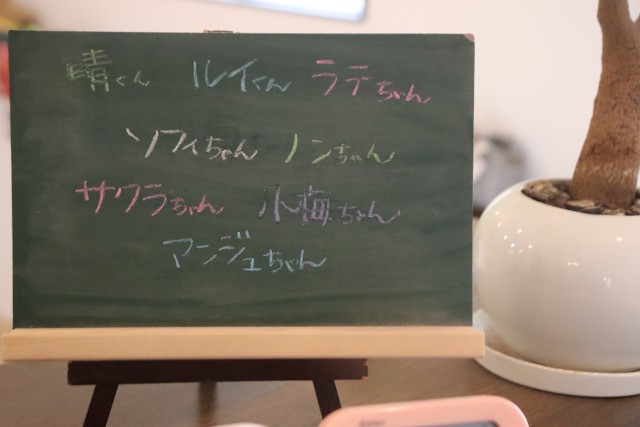 晴くん ルイくん ラテちゃん
ソフィちゃん ノンちゃん
サクラちゃん 小梅ちゃん
アンジュちゃん